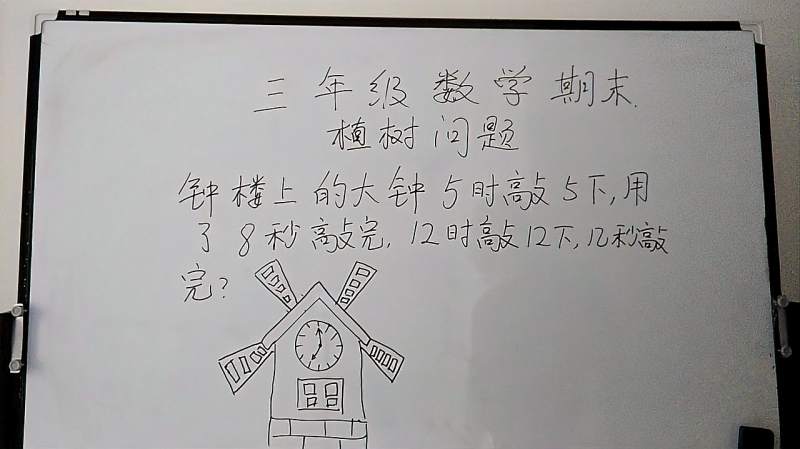 三年级数学期末
植树问题
钟楼上的大钟5时敲5下,用
了8秒敲完.12时敲12下,几秒敲
完?